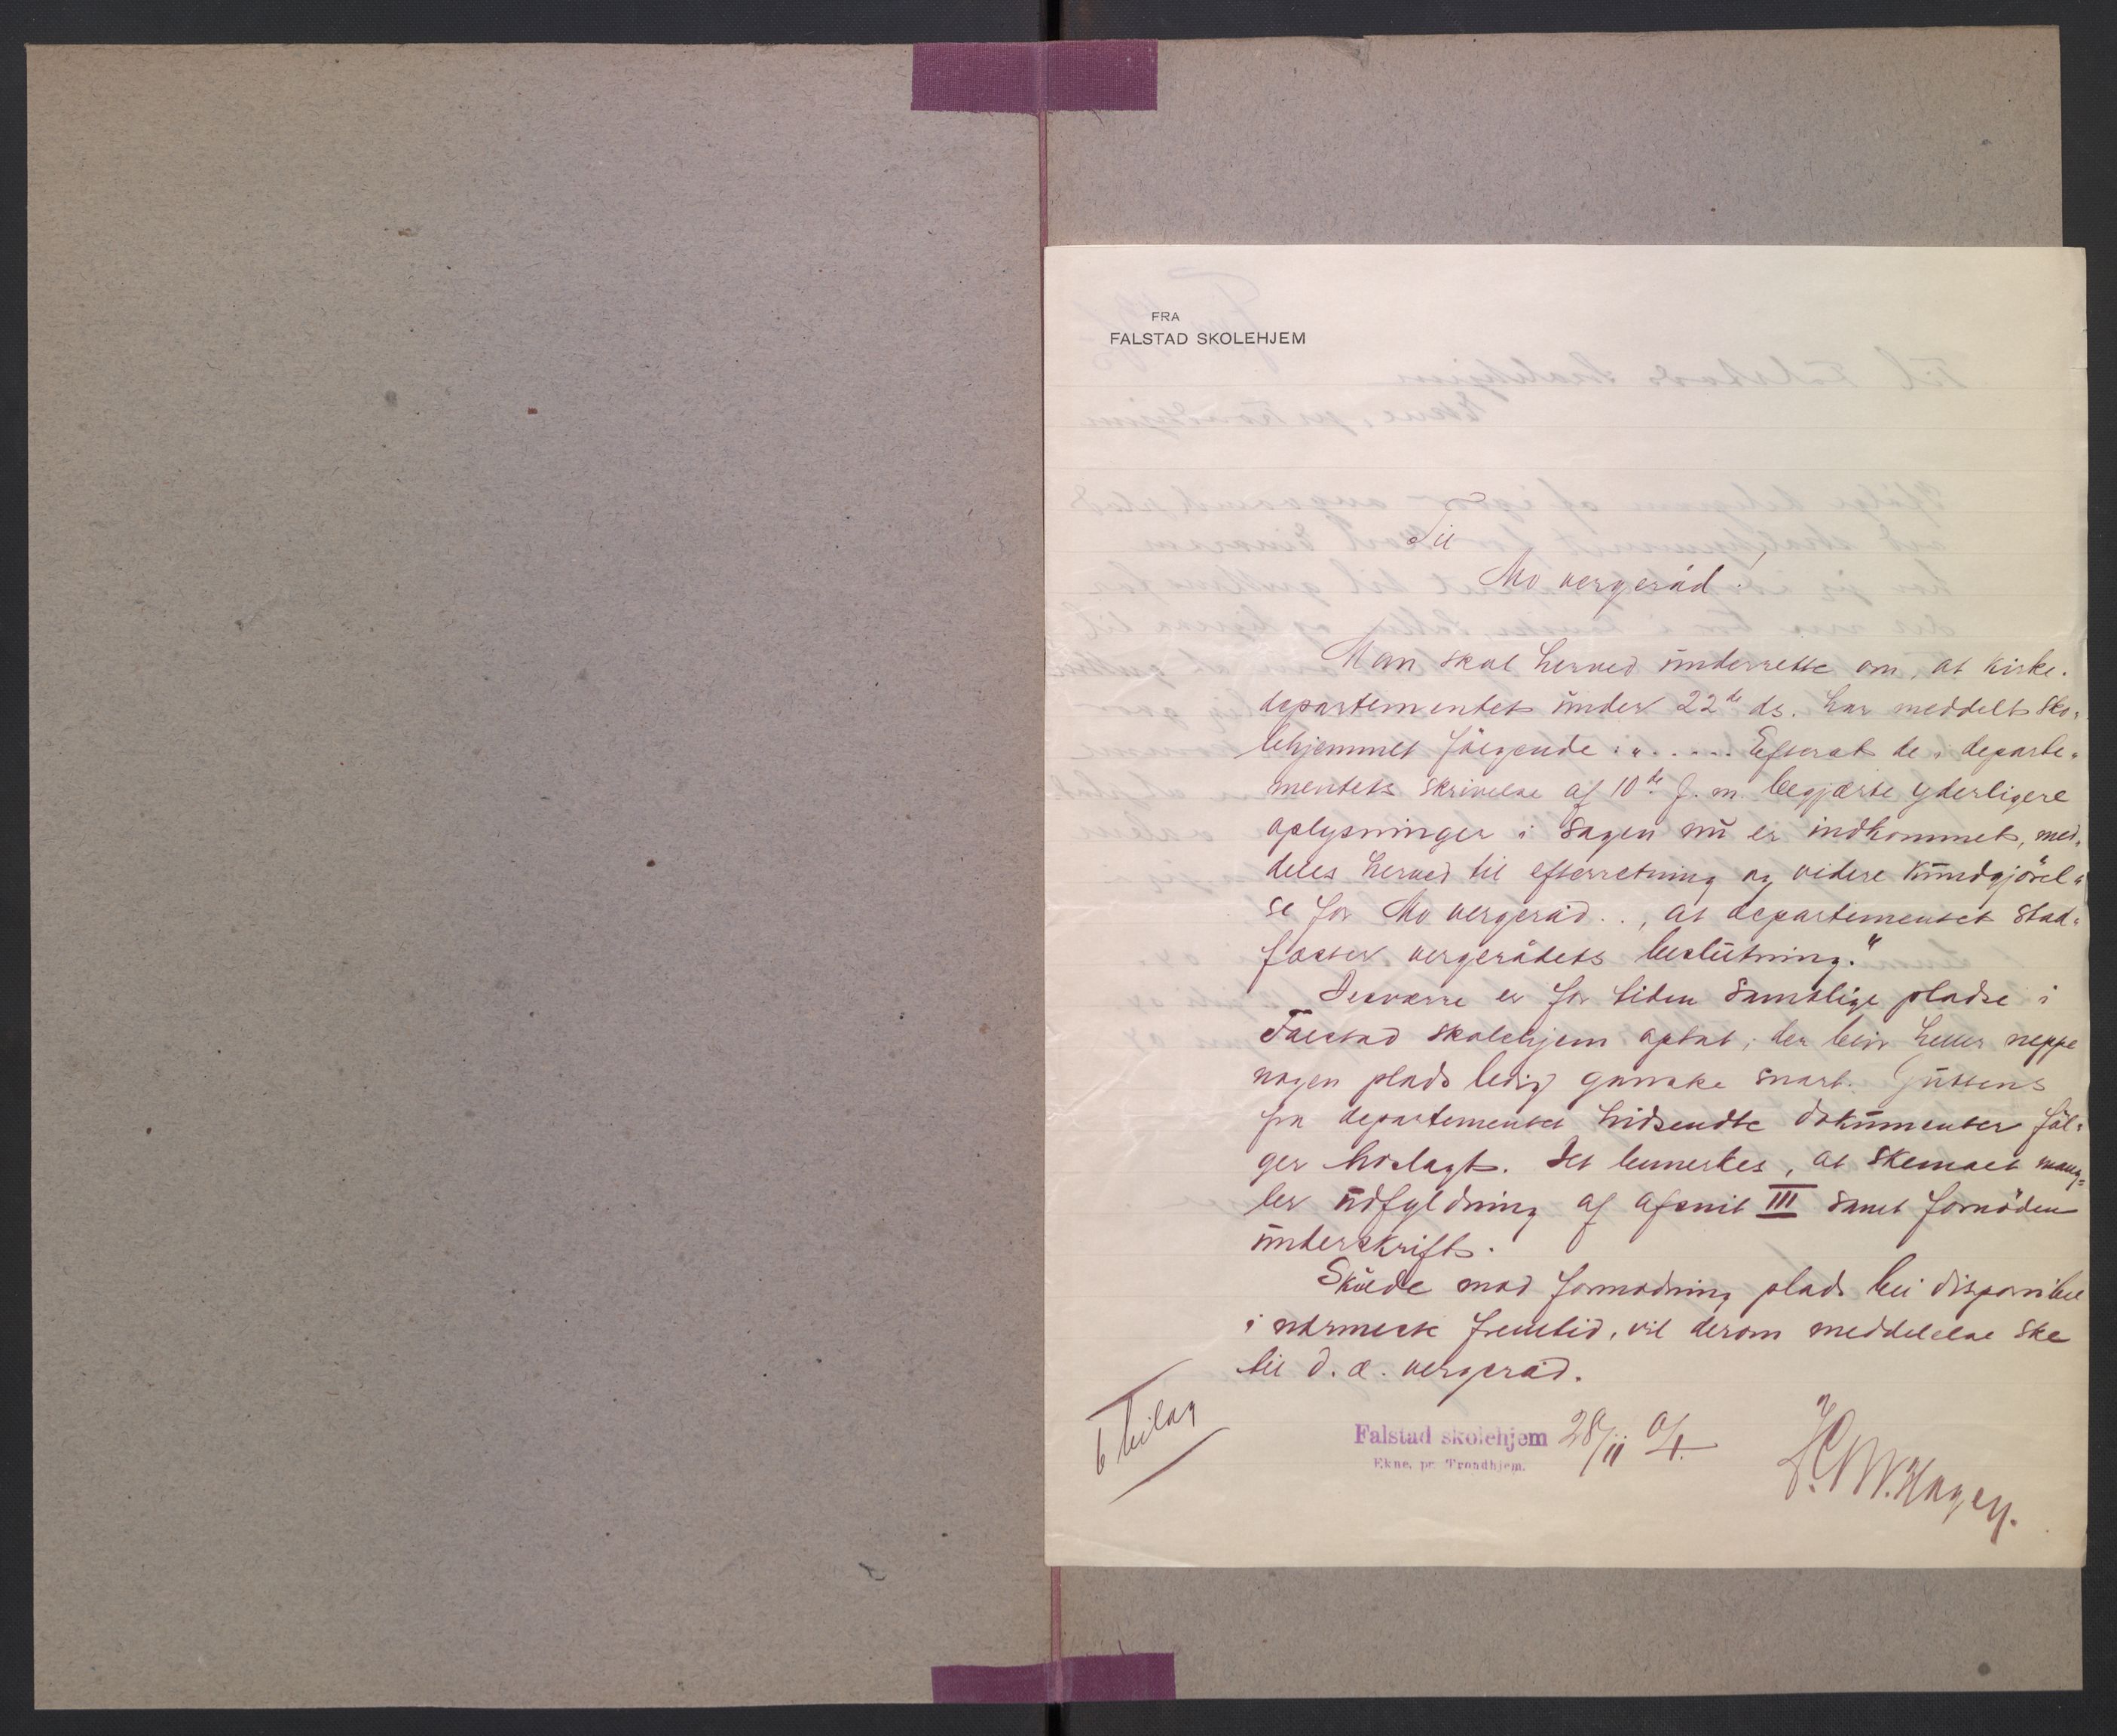 FRA
FALSTAD SKOLEHJEM
Til
Mo vergeråd!
Man skal herved underrette om, at kirke-
departementet under 22de ds. har meddelt sko-
lehjemmet følgende: „..... Efterat de i departe-
mentets skrivelse af 10de f. m. begjærte yderligere
oplysninger i sagen nu er indkommet, med-
deles herved til efterretning og videre kundgjørel-
se for Mo vergeråd.., at departementet stad-
fæster vergerådets beslutning."
Desværre er for tiden samtlige pladse i
Falstad skolehjem optat; der blir heller neppe
nogen plads ledig ganske snart. Guttens
fra departementet hidsendte dokumenter føl-
ger hoslagt. Det bemerkes, at skemaet mang-
ler udfyldning af afsnit III samt fornøden
underskrift.
Skulde mod formodning plads bli disponibel
i nærmeste fremtid, vil derom meddelelse ske
til d. æ. vergeråd.
6 bilag
Falstad skolehjem 28/11 04.
Ekne, pr. Trondhjem.
Hagen.